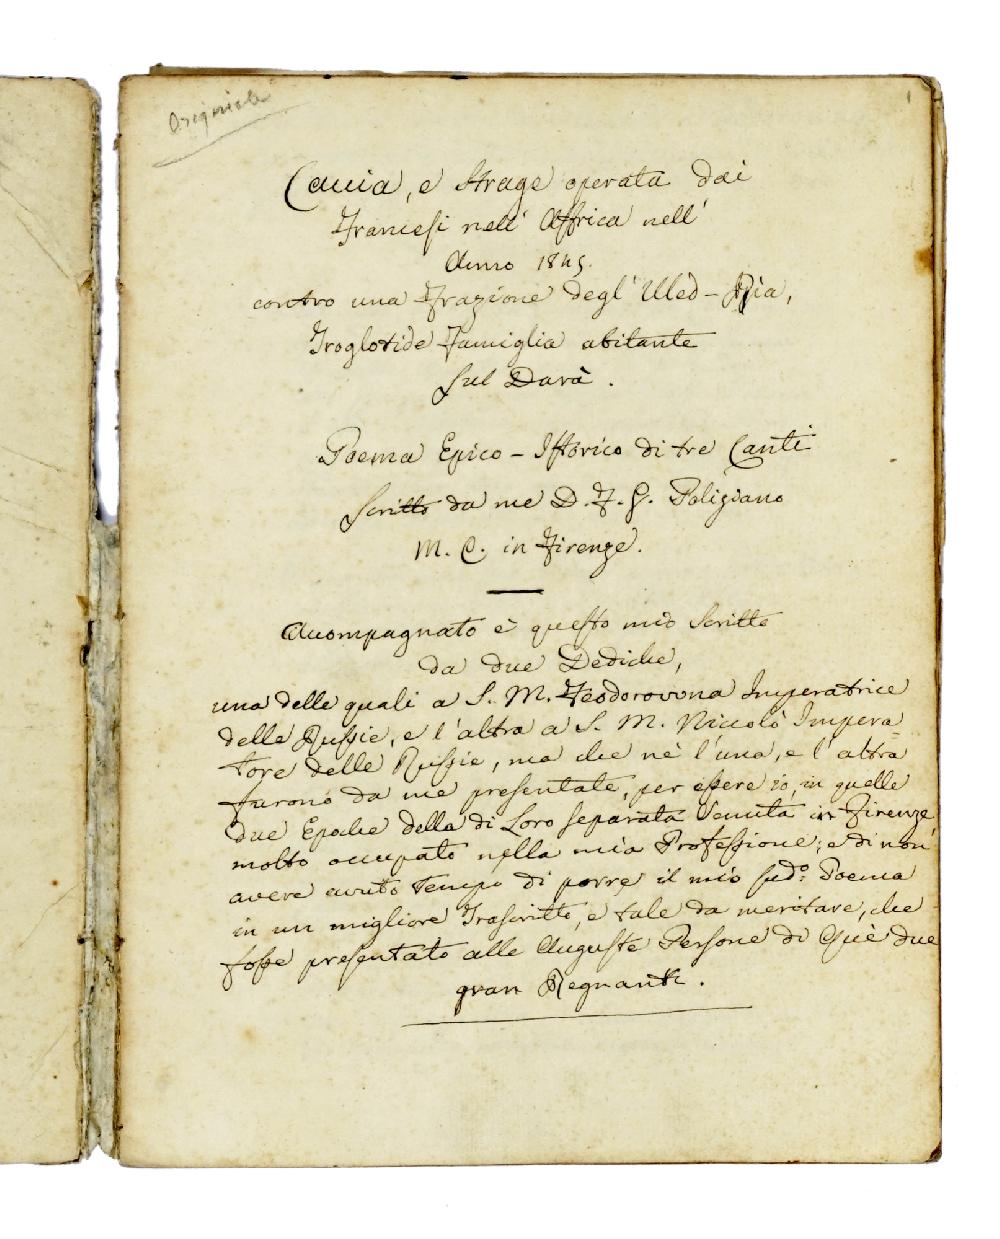 Originale
1
Caccia, e Strage operata dai
Francesi nell' Affrica nell'
Anno 1845.
contro una Frazione degl' Uled-Ria,
Troglotide Famiglia abitante
sul Darà.
Poema Epico-Istorico di tre Canti
Scritto da me D. F. G. Poliziano
M. C. in Firenze.
Acompagnato è questo mio Scritto
da due Dediche,
una delle quali a S. M. Feodorovvna Imperatrice
delle Russie, e l'altra a S. M. Niccolò Impera=
tore delle Russie, ma che nè l'una, e l'altra
furono da me presentate, per essere io, in quelle
due Epoche della di Loro separata Venuta in Firenze
molto occupato nella mia Professione; e di non
avere avuto Tempo di porre il mio sud.o Poema
in un migliore Trascritto, e tale da meritare, che
fosse presentato alle Auguste Persone di Què due
gran Regnanti.